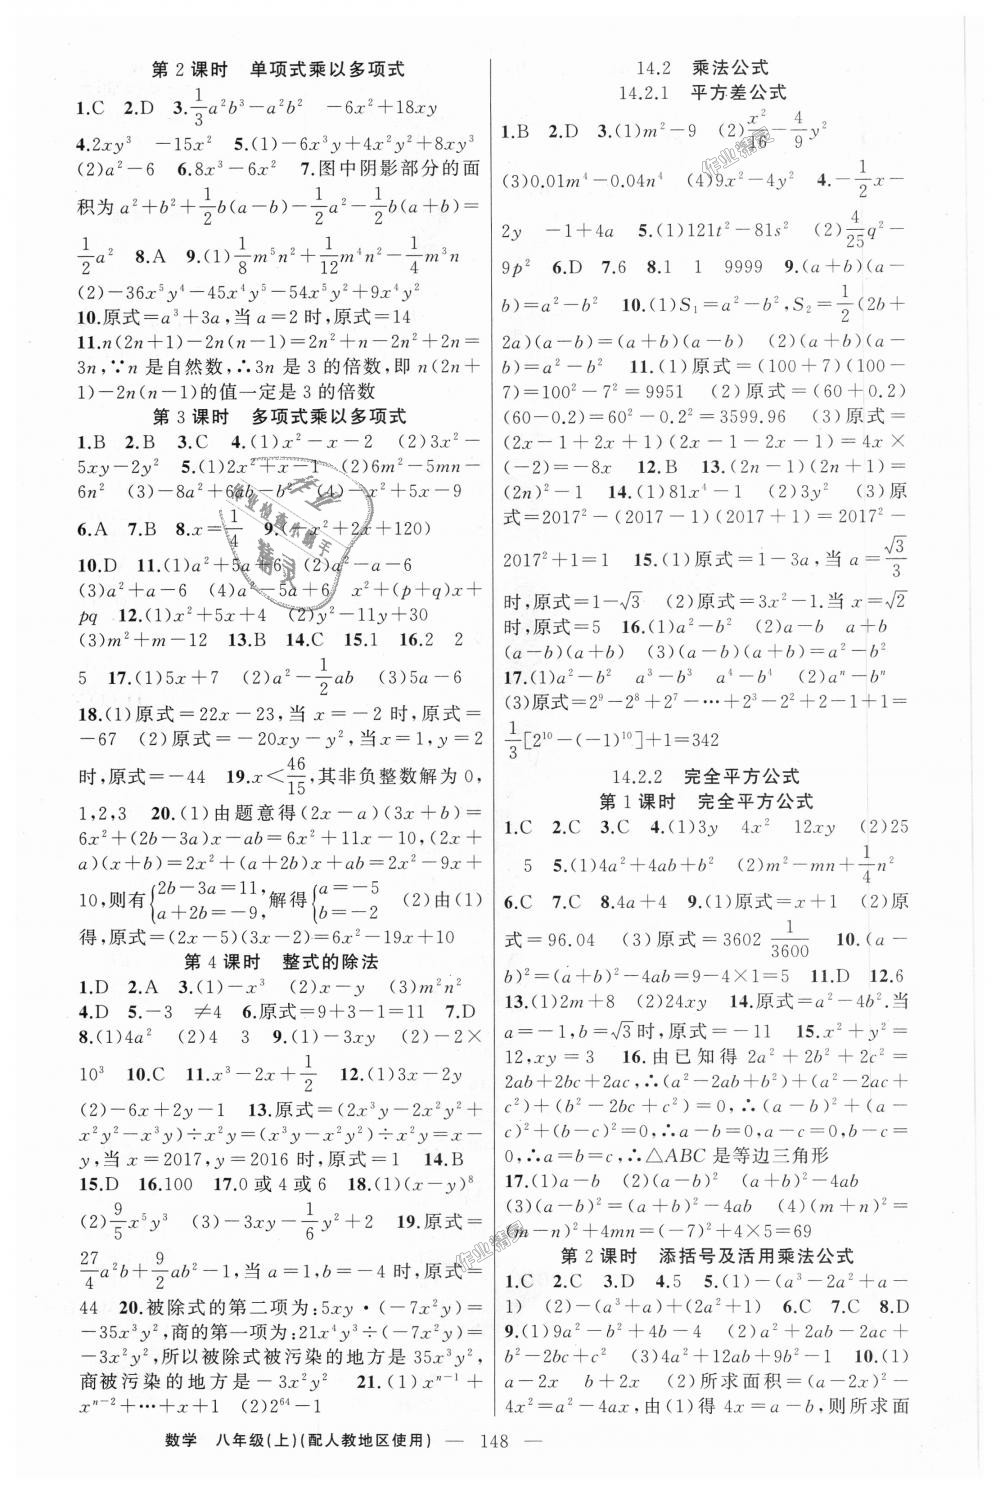 第2课时　单项式乘以多项式
1.C　2.D　3.1/3a²b³－a²b²　－6x²＋18xy
4.2xy³　－15x²　5.(1)－6x³y＋4x²y²＋8xy³
(2)a²－6　6.8x³－6x²　7.图中阴影部分的面
积为a²＋b²＋1/2b(a－b)－1/2a²－1/2b(a＋b)＝
1/2a²　8.A　9.(1)1/8m⁵n²＋1/12m⁴n²－1/4m³n
(2)－36x⁵y⁴－45x⁴y⁵－54x⁵y²＋9x⁴y²
10.原式＝a³＋3a,当a＝2时,原式＝14
11.n(2n＋1)－2n(n－1)＝2n²＋n－2n²＋2n＝
3n,∵n是自然数,∴3n是3的倍数,即n(2n＋
1)－2n(n－1)的值一定是3的倍数
第3课时　多项式乘以多项式
1.B　2.B　3.C　4.(1)x²－x－2　(2)3x²－
5xy－2y²　5.(1)2x²＋x－1　(2)6m²－5mn－
6n²　(3)－8a²＋6ab－b²　(4)－x²＋5x－9
6.A　7.B　8.x＝1/4　9.( x²＋2x＋120)
10.D　11.(1)a²＋5a＋6　(2)a²－a－6
(3)a²＋a－6　(4)a²－5a＋6　x²＋(p＋q)x＋
pq　12.(1)x²＋5x＋4　(2)y²－11y＋30
(3)m²＋m－12　13.B　14.C　15.1　16.2　2
5　17.(1)5x＋7　(2)a²－1/2ab　(3)5a－6
18.(1)原式＝22x－23,当x＝－2时,原式＝
－67　(2)原式＝－20xy－y²,当x＝1,y＝2
时,原式＝－44　19.x＜46/15,其非负整数解为0,
1,2,3　20.(1)由题意得(2x－a)(3x＋b)＝
6x²＋(2b－3a)x－ab＝6x²＋11x－10,(2x＋
a)(x＋b)＝2x²＋(a＋2b)x＋ab＝2x²－9x＋
10,则有{2b－3a＝11, a＋2b＝－9,解得{a＝－5 b＝－2　(2)由(1)
得,原式＝(2x－5)(3x－2)＝6x²－19x＋10
第4课时　整式的除法
1.D　2.A　3.(1)－x³　(2)x－y　(3)m²n²
4.D　5.－3　≠4　6.原式＝9＋3－1＝11　7.D
8.(1)4a²　(2)4　3　9.(1)－3xy　(2)－2×
10³　10.C　11.x³－2x＋1/2　12.(1)3x－2y
(2)－6x＋2y－1　13.原式＝(2x³y－2x²y²＋
x²y²－x³y)÷x²y＝(x³y－x²y²)÷x²y＝x－
y,当x＝2017,y＝2016时,原式＝1　14.B
15.D　16.100　17.0或4或6　18.(1)(x－y)⁸
(2)9/5x⁵y³　(3)－3xy－1/6y²＋2　19.原式＝
27/4a²b＋9/2ab²－1,当a＝1,b＝－4时,原式＝
44　20.被除式的第二项为:5xy·(－7x²y)＝
－35x³y²,商的第一项为:21x⁴y³÷(－7x²y)＝
－3x²y²,所以被除式被污染的地方是35x³y²,
商被污染的地方是－3x²y²　21.(1)xⁿ⁻¹＋
xⁿ⁻²＋…＋x＋1　(2)2⁶⁴－1
14.2　乘法公式
14.2.1　平方差公式
1.B　2.D　3.(1)m²－9　(2)x²/16－4/9y²
(3)0.01m⁴－0.04n⁴　(4)9x²－4y²　4.－1/2x－
2y　－1＋4a　5.(1)121t²－81s²　(2)4/25q²－
9p²　6.D　7.6　8.1　1　9999　9.(a＋b)(a－
b)＝a²－b²　10.(1)S₁＝a²－b²,S₂＝1/2(2b＋
2a)(a－b)＝(a＋b)(a－b)　(2)(a＋b)(a－
b)＝a²－b²　11.(1)原式＝(100＋7)(100－
7)＝100²－7²＝9951　(2)原式＝(60＋0.2)
(60－0.2)＝60²－0.2²＝3599.96　(3)原式＝
(2x－1＋2x＋1)(2x－1－2x－1)＝4x×
(－2)＝－8x　12.B　13.(2n－1)(2n＋1)＝
(2n)²－1　14.(1)81x⁴－1　(2)3y²　(3)原
式＝2017²－(2017－1)(2017＋1)＝2017²－
2017²＋1＝1　15.(1)原式＝1－3a,当a＝√3/3
时,原式＝1－√3　(2)原式＝3x²－1.当x＝√2
时,原式＝5　16.(1)a²－b²　(2)a－b　a＋b
(a－b)(a＋b)　(3)(a－b)(a＋b)＝a²－b²
17.(1)a²－b²　a³－b³　a⁴－b⁴　(2)aⁿ－bⁿ
(3)原式＝2⁹－2⁸＋2⁷－…＋2³－2²＋2－1＋1＝
1/3[2¹⁰－(－1)¹⁰]＋1＝342
14.2.2　完全平方公式
第1课时　完全平方公式
1.C　2.C　3.C　4.(1)3y　4x²　12xy　(2)25
5　5.(1)4a²＋4ab＋b²　(2)m²－mn＋1/4n²
6.C　7.C　8.4a＋4　9.(1)原式＝x＋1　(2)原
式＝96.04　(3)原式＝3602 1/3600　10.(a－
b)²＝(a＋b)²－4ab＝9－4×1＝5　11.D　12.6
13.(1)2m＋8　(2)24xy　14.原式＝a²－4b².当
a＝－1,b＝√3时,原式＝－11　15.x²＋y²＝
12,xy＝3　16.由已知得2a²＋2b²＋2c²＝
2ab＋2bc＋2ac,∴(a²－2ab＋b²)＋(a²－2ac＋
c²)＋(b²－2bc＋c²)＝0,∴(a－b)²＋(a－
c)²＋(b－c)²＝0,∴a－b＝0,a－c＝0,b－c＝
0,∴a＝b＝c,∴△ABC是等边三角形
17.(1)a－b　(2)(a－b)²　(a＋b)²－4ab
(3)(a－b)²＝(a＋b)²－4ab　(4)(m＋n)²＝
(m－n)²＋4mn＝(－7)²＋4×5＝69
第2课时　添括号及活用乘法公式
1.C　2.C　3.D　4.5　5.(1)－(a³－2a²＋a－
1)　(2)－(a³＋a)＋(2a²＋1)　6.C　7.C　8.D
9.(1)9a²－b²＋4b－4　(2)a²＋2ab－2ac＋
b²－2bc＋c²　(3)4a²＋12ab＋9b²－1　10.(1)
a－2x　b＋2x　(2)所求面积＝(a－2x)²－
4x²＝a²－4ax,由(1)得4x＝a－b,则所求面
数学　八年级(上)(配人教地区使用)　—　148　—
作业精灵
作业精灵